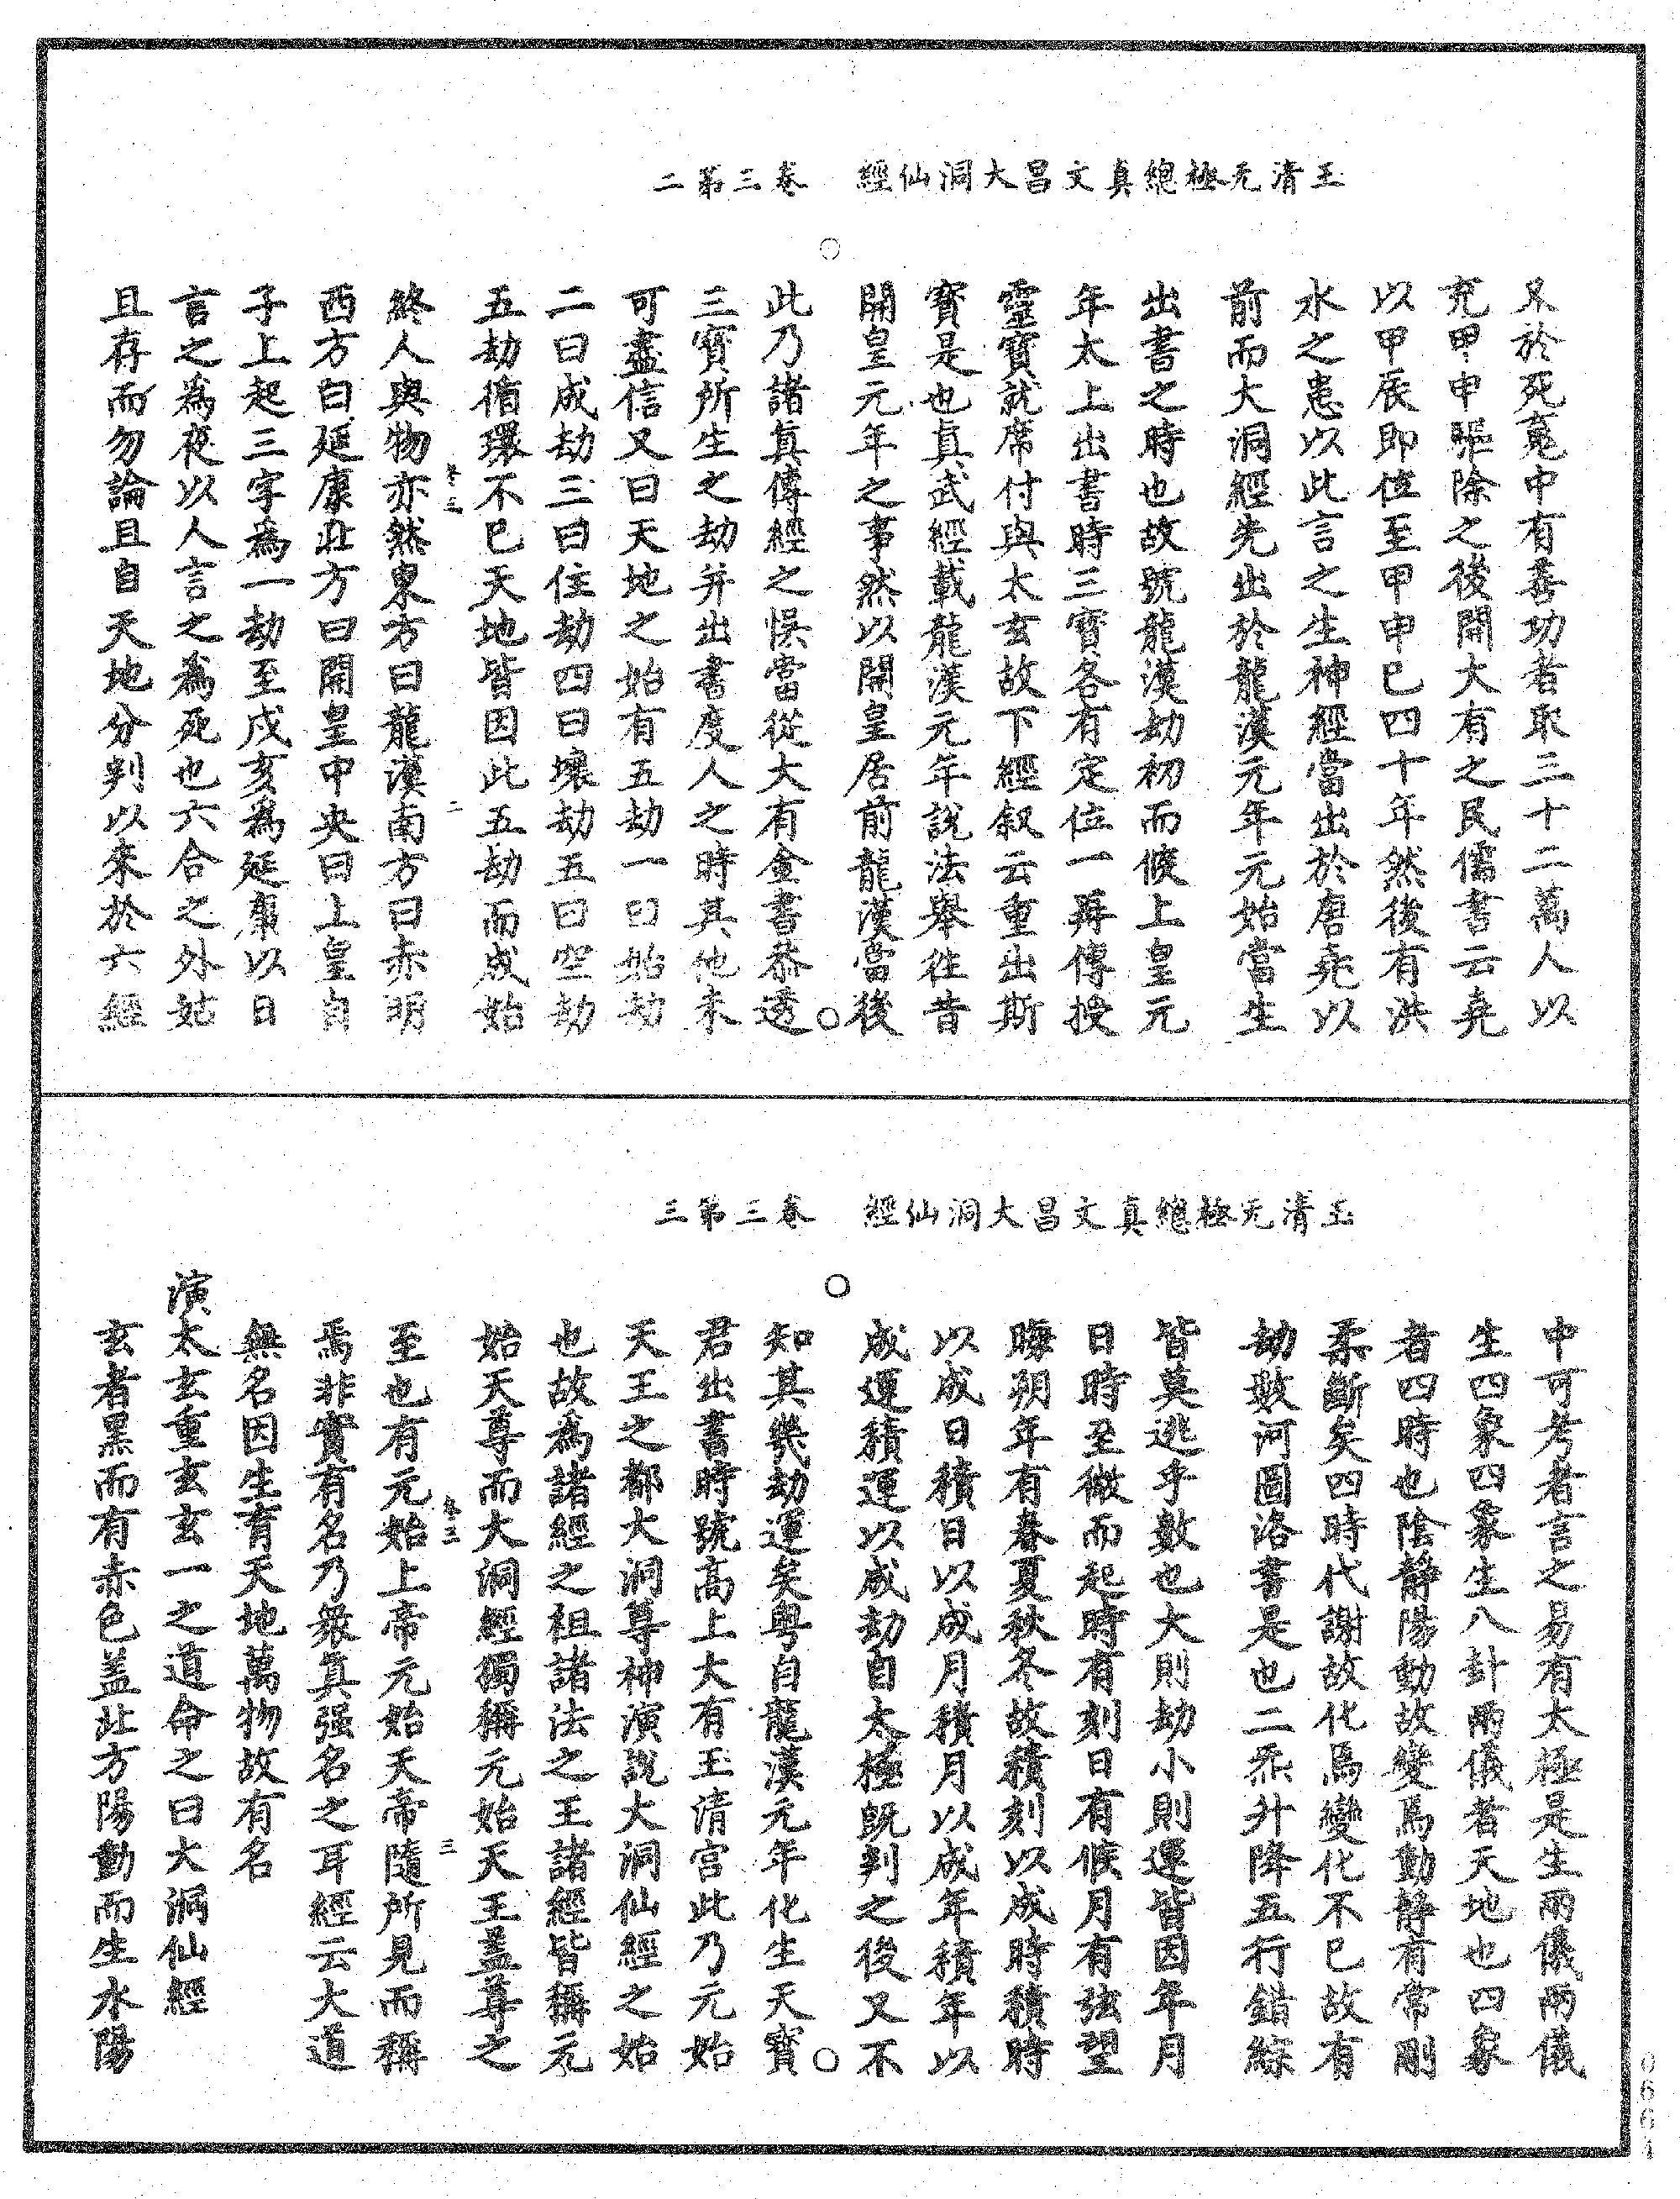 玉清无極總真文昌大洞仙經　卷三第二
又於死𡨚中有善功者取三十二萬人以
充甲申驅除之後開大有之民儒書云堯
以甲辰即位至甲申已四十年然後有洪
水之患以此言之生神經當出於唐堯以
前而大洞經先出於龍漢元年元始當生
出書之時也故號龍漢劫初而候上皇元
年太上出書時三寶各有定位一再傳授
靈寶就席付與太玄故下經叙云重出斯
寶是也真武經載龍漢元年說法舉往昔
開皇元年之事然以開皇居前龍漢當後
此乃諸真傳經之悞當從大有金書恭透
三寶所生之劫并出書度人之時其他未
可盡信又曰天地之始有五劫一曰始劫
二曰成劫三曰住劫四曰壞劫五曰空劫
五劫循環不已天地皆因此五劫而成始
終人與物亦然東方曰龍漢南方曰赤明
卷三
二
西方曰延康北方曰開皇中央曰上皇自
子上起三字為一劫至戌亥為延康以日
言之為夜以人言之為死也六合之外姑
且存而勿論且自天地分判以來於六經
玉清无極總真文昌大洞仙經　卷三第三
中可考者言之易有太極是生兩儀兩儀
生四象四象生八卦兩儀者天地也四象
者四時也陰靜陽動故變焉動靜有常剛
柔斷矣四時代謝故化焉變化不已故有
劫數河圖洛書是也二炁升降五行錯綜
皆莫逃乎數也大則劫小則運皆因年月
日時至微而起時有刻日有候月有弦望
晦朔年有春夏秋冬故積刻以成時積時
以成日積日以成月積月以成年積年以
成運積運以成劫自太極既判之後又不
知其幾劫運矣粵自龍漢元年化生天寶
君出書時號高上大有玉清宮此乃元始
天王之都大洞尊神演說大洞仙經之始
也故為諸經之祖諸法之王諸經皆稱元
始天尊而大洞經獨稱元始天王蓋尊之
至也有元始上帝元始天帝隨所見而稱
卷三
三
焉非實有名乃眾真强名之耳經云大道
無名因生育天地萬物故有名
演太玄重玄玄一之道命之曰大洞仙經
玄者黑而有赤色盖北方陽動而生水陽
0664